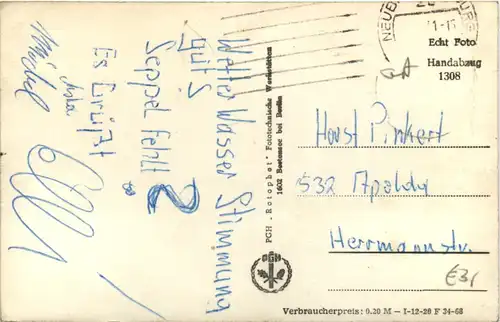 Wetter Wasser Stimmung
gut S
Seppel fehlt
Es Grüßt
Michael
PGH „Rotophot" Fototechnische Werkstätten
1602 Bestensee bei Berlin
PGH
NEUB
Echt Foto
Handabzug
1308
Horst Pinkert
532 Apolda
Herrmannstr.
Verbraucherpreis: 0.20 M — I-12-20 F 24-68